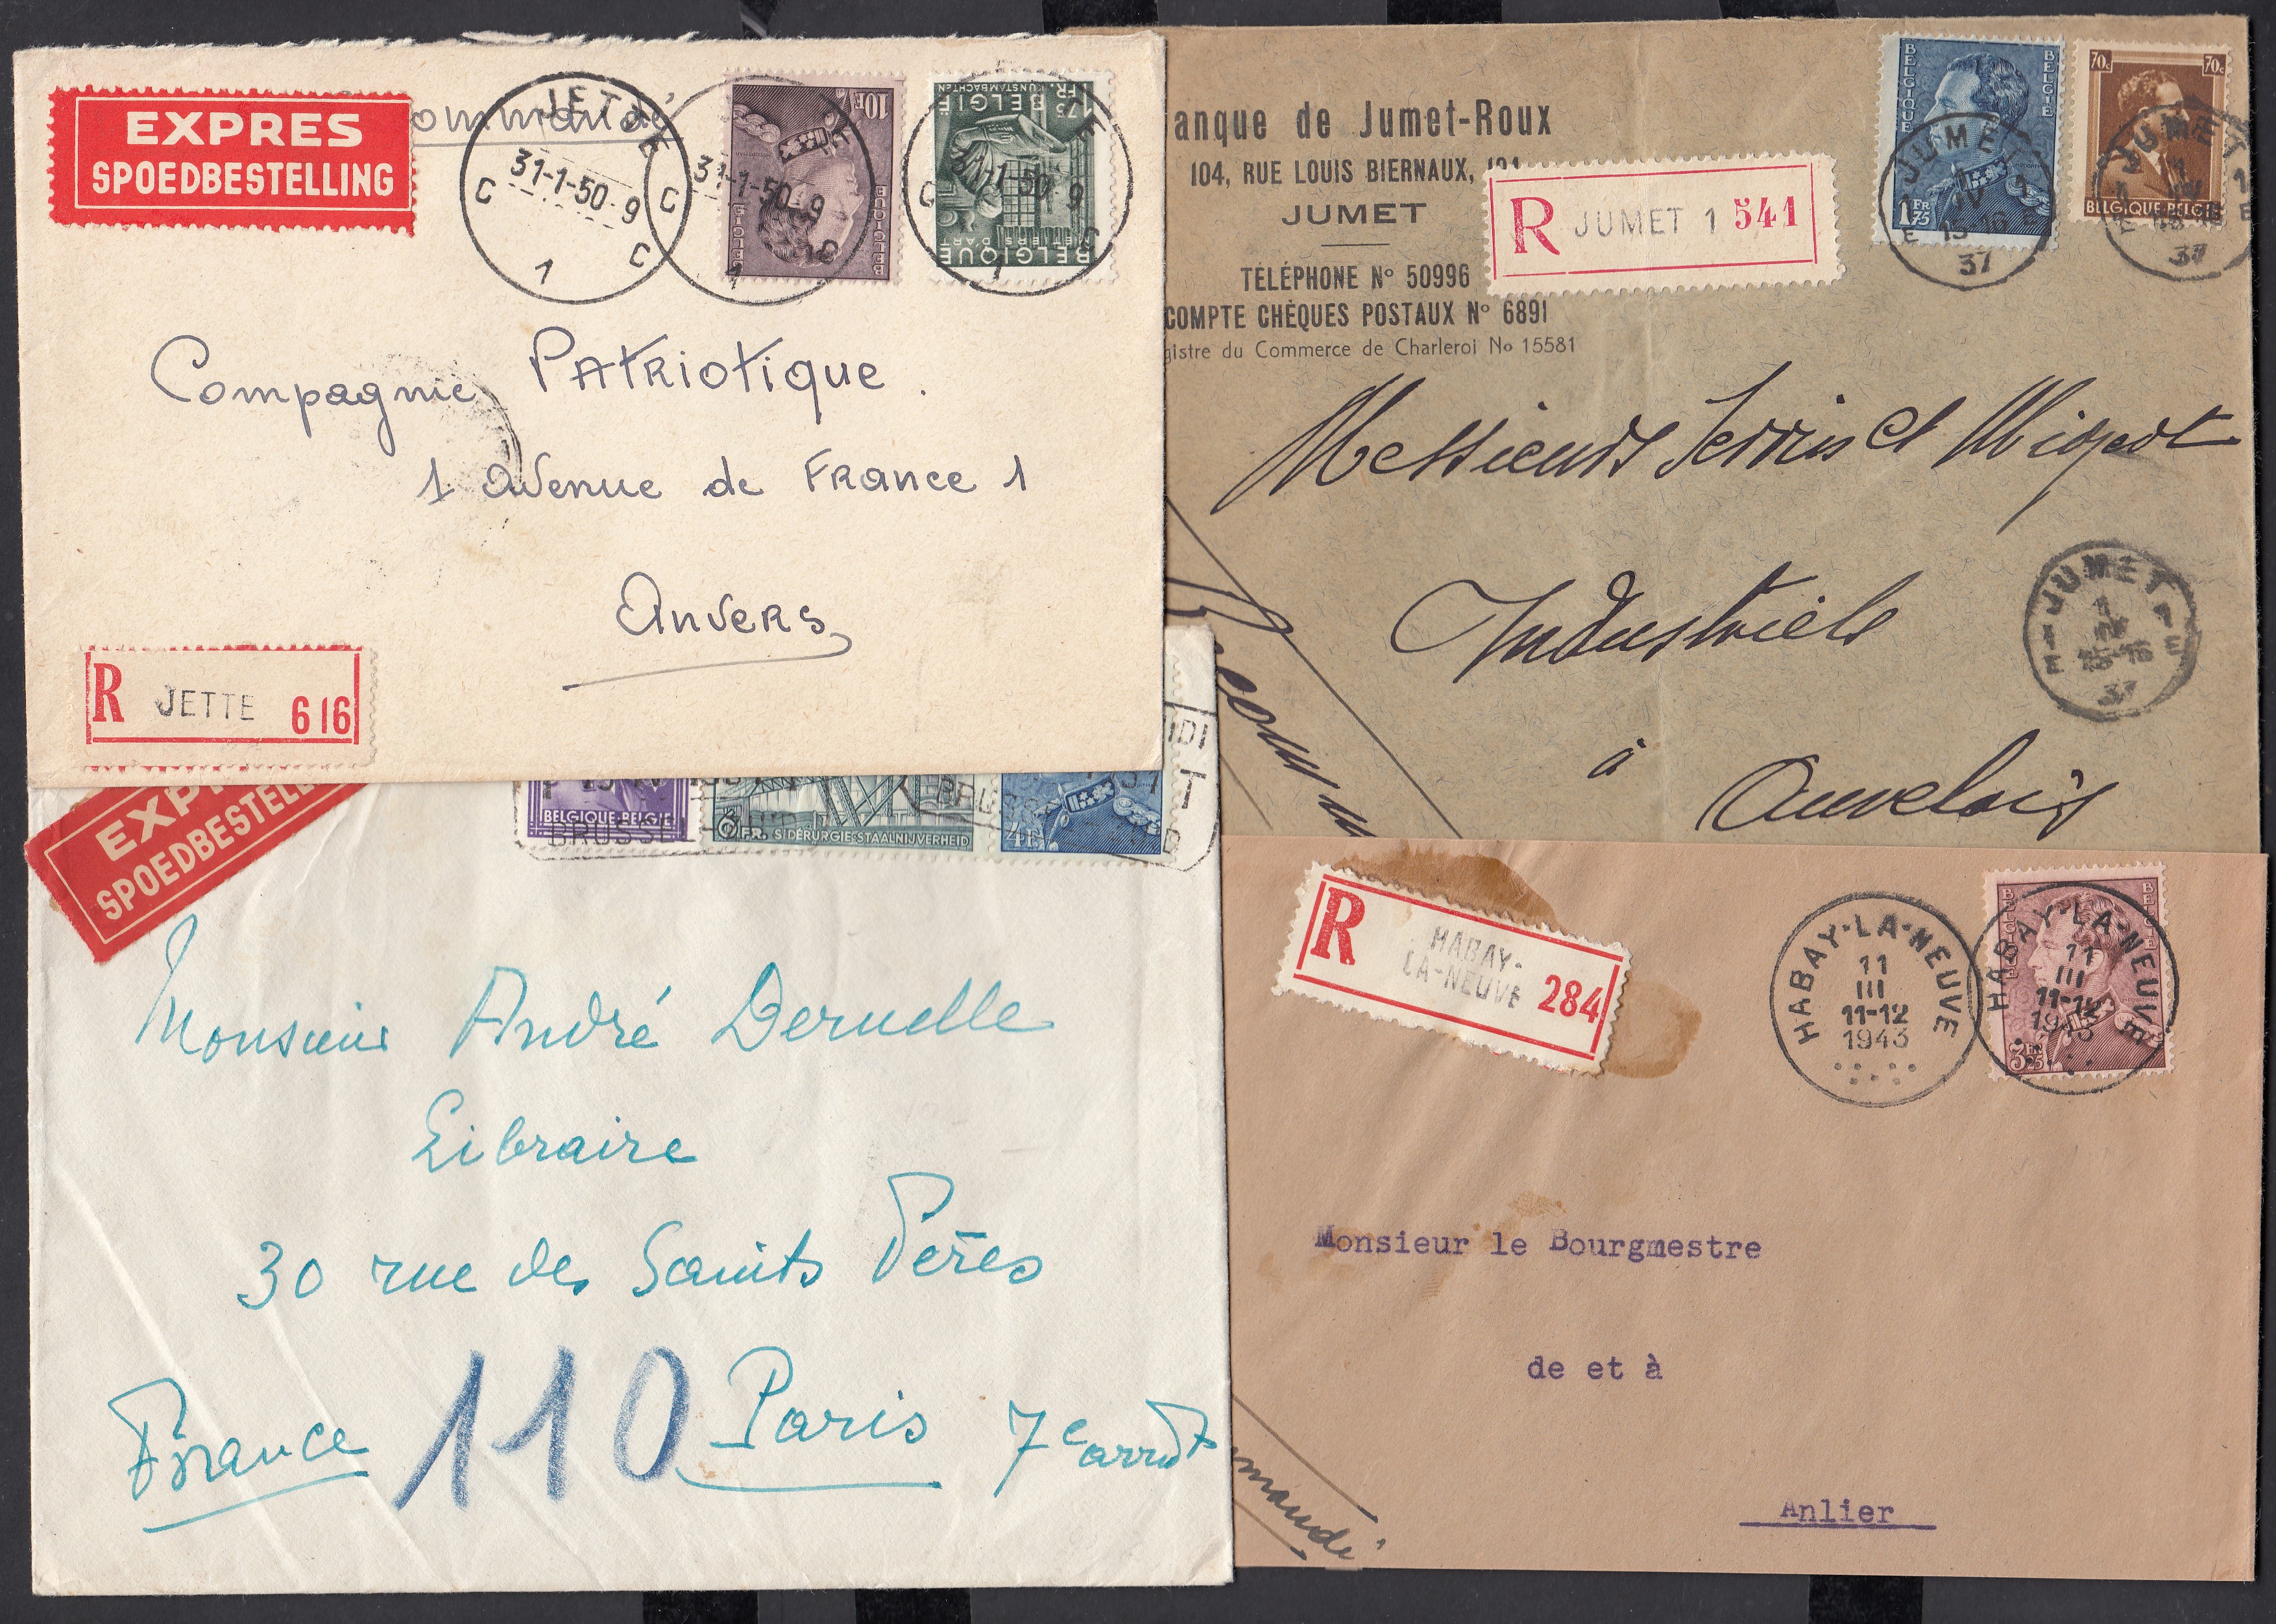 EXPRES
SPOEDBESTELLING
ommandé
JETTE
31-1-50-9
C C
1
JETTE
31-1-50-9
C C
1
10F
BELGIQUE
BELGIE
JETTE
31-1-50-9
C C
1
1F75
BELGIË
KUNSTAMBACHTEN
MÉTIERS D'ART
BELGIQUE
Compagnie PATRIOTIQUE.
1 avenue de France 1
Anvers
R JETTE 616
anque de Jumet-Roux
104, RUE LOUIS BIERNAUX,
JUMET
TÉLÉPHONE No 50996
COMPTE CHÈQUES POSTAUX No 6891
gistre du Commerce de Charleroi No 15581
R JUMET 1 541
BELGIQUE
BELGIE
1FR 75
JUMET 1
1
IV
15-16
37
E E
70c 70c
BELGIQUE-BELGIE
JUMET 1
37
E E
Messieurs
Industriels
à
Auvelais
JUMET
1
15-16
37
E E
EXPR
SPOEDBESTELL
BELGIQUE-BELGIE
BRUSSEL
6 FR. SIDÉRURGIE-STAALNIJVERHEID
4F
IDI
Monsieur André Dernelle
Libraire
30 rue des Saints Pères
France 110 Paris 7e arrdt
R HABAY-
LA-NEUVE 284
HABAY-LA-NEUVE
11
III
11-12
1943
HABAY-LA-NEUVE
11
III
11-12
1943
3FR 25
Monsieur le Bourgmestre
de et à
Anlier
mmandé